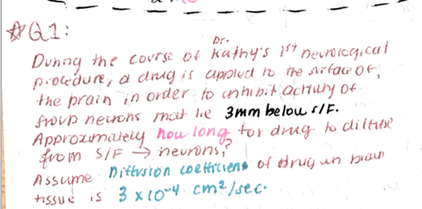 *Q1:
During the course of Dr. Kathy's 1st neurological
procedure, a drug is applied to the surface of
the brain in order to inhibit activity of
group neurons that lie 3mm below s/f.
Approximately how long for drug to diffuse
from s/f → neurons?
Assume Diffusion coefficient of drug in brain
tissue is 3 x 10-4 cm²/sec.